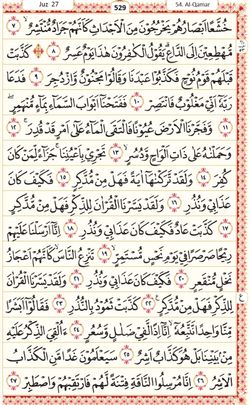 Juz 27 529 54. Al-Qamar
خُشَّعًا أَبْصَارُهُمْ يَخْرُجُونَ مِنَ الْأَجْدَاثِ كَأَنَّهُمْ جَرَادٌ مُّنتَشِرٌ ٧
مُّهْطِعِينَ إِلَى الدَّاعِ يَقُولُ الْكَافِرُونَ هَٰذَا يَوْمٌ عَسِرٌ ٨ كَذَّبَتْ
قَبْلَهُمْ قَوْمُ نُوحٍ فَكَذَّبُوا عَبْدَنَا وَقَالُوا مَجْنُونٌ وَازْدُجِرَ ٩ فَدَعَا
رَبَّهُ أَنِّي مَغْلُوبٌ فَانتَصِرْ ١٠ فَفَتَحْنَا أَبْوَابَ السَّمَاءِ بِمَاءٍ مُّنْهَمِرٍ
١١ وَفَجَّرْنَا الْأَرْضَ عُيُونًا فَالْتَقَى الْمَاءُ عَلَىٰ أَمْرٍ قَدْ قُدِرَ ١٢
وَحَمَلْنَاهُ عَلَىٰ ذَاتِ أَلْوَاحٍ وَدُسُرٍ ١٣ تَجْرِي بِأَعْيُنِنَا جَزَاءً لِّمَن كَانَ
كُفِرَ ١٤ وَلَقَد تَّرَكْنَاهَا آيَةً فَهَلْ مِن مُّدَّكِرٍ ١٥ فَكَيْفَ كَانَ
عَذَابِي وَنُذُرِ ١٦ وَلَقَدْ يَسَّرْنَا الْقُرْآنَ لِلذِّكْرِ فَهَلْ مِن مُّدَّكِرٍ
١٧ كَذَّبَتْ عَادٌ فَكَيْفَ كَانَ عَذَابِي وَنُذُرِ ١٨ إِنَّا أَرْسَلْنَا عَلَيْهِمْ
رِيحًا صَرْصَرًا فِي يَوْمِ نَحْسٍ مُّسْتَمِرٍّ ١٩ تَنزِعُ النَّاسَ كَأَنَّهُمْ أَعْجَازُ
نَخْلٍ مُّنقَعِرٍ ٢٠ فَكَيْفَ كَانَ عَذَابِي وَنُذُرِ ٢١ وَلَقَدْ يَسَّرْنَا الْقُرْآنَ
لِلذِّكْرِ فَهَلْ مِن مُّدَّكِرٍ ٢٢ كَذَّبَتْ ثَمُودُ بِالنُّذُرِ ٢٣ فَقَالُوا أَبَشَرًا
مِّنَّا وَاحِدًا نَّتَّبِعُهُ إِنَّا إِذًا لَّفِي ضَلَالٍ وَسُعُرٍ ٢٤ أَأُلْقِيَ الذِّكْرُ عَلَيْهِ
مِن بَيْنِنَا بَلْ هُوَ كَذَّابٌ أَشِرٌ ٢٥ سَيَعْلَمُونَ غَدًا مَّنِ الْكَذَّابُ
الْأَشِرُ ٢٦ إِنَّا مُرْسِلُو النَّاقَةِ فِتْنَةً لَّهُمْ فَارْتَقِبْهُمْ وَاصْطَبِرْ ٢٧